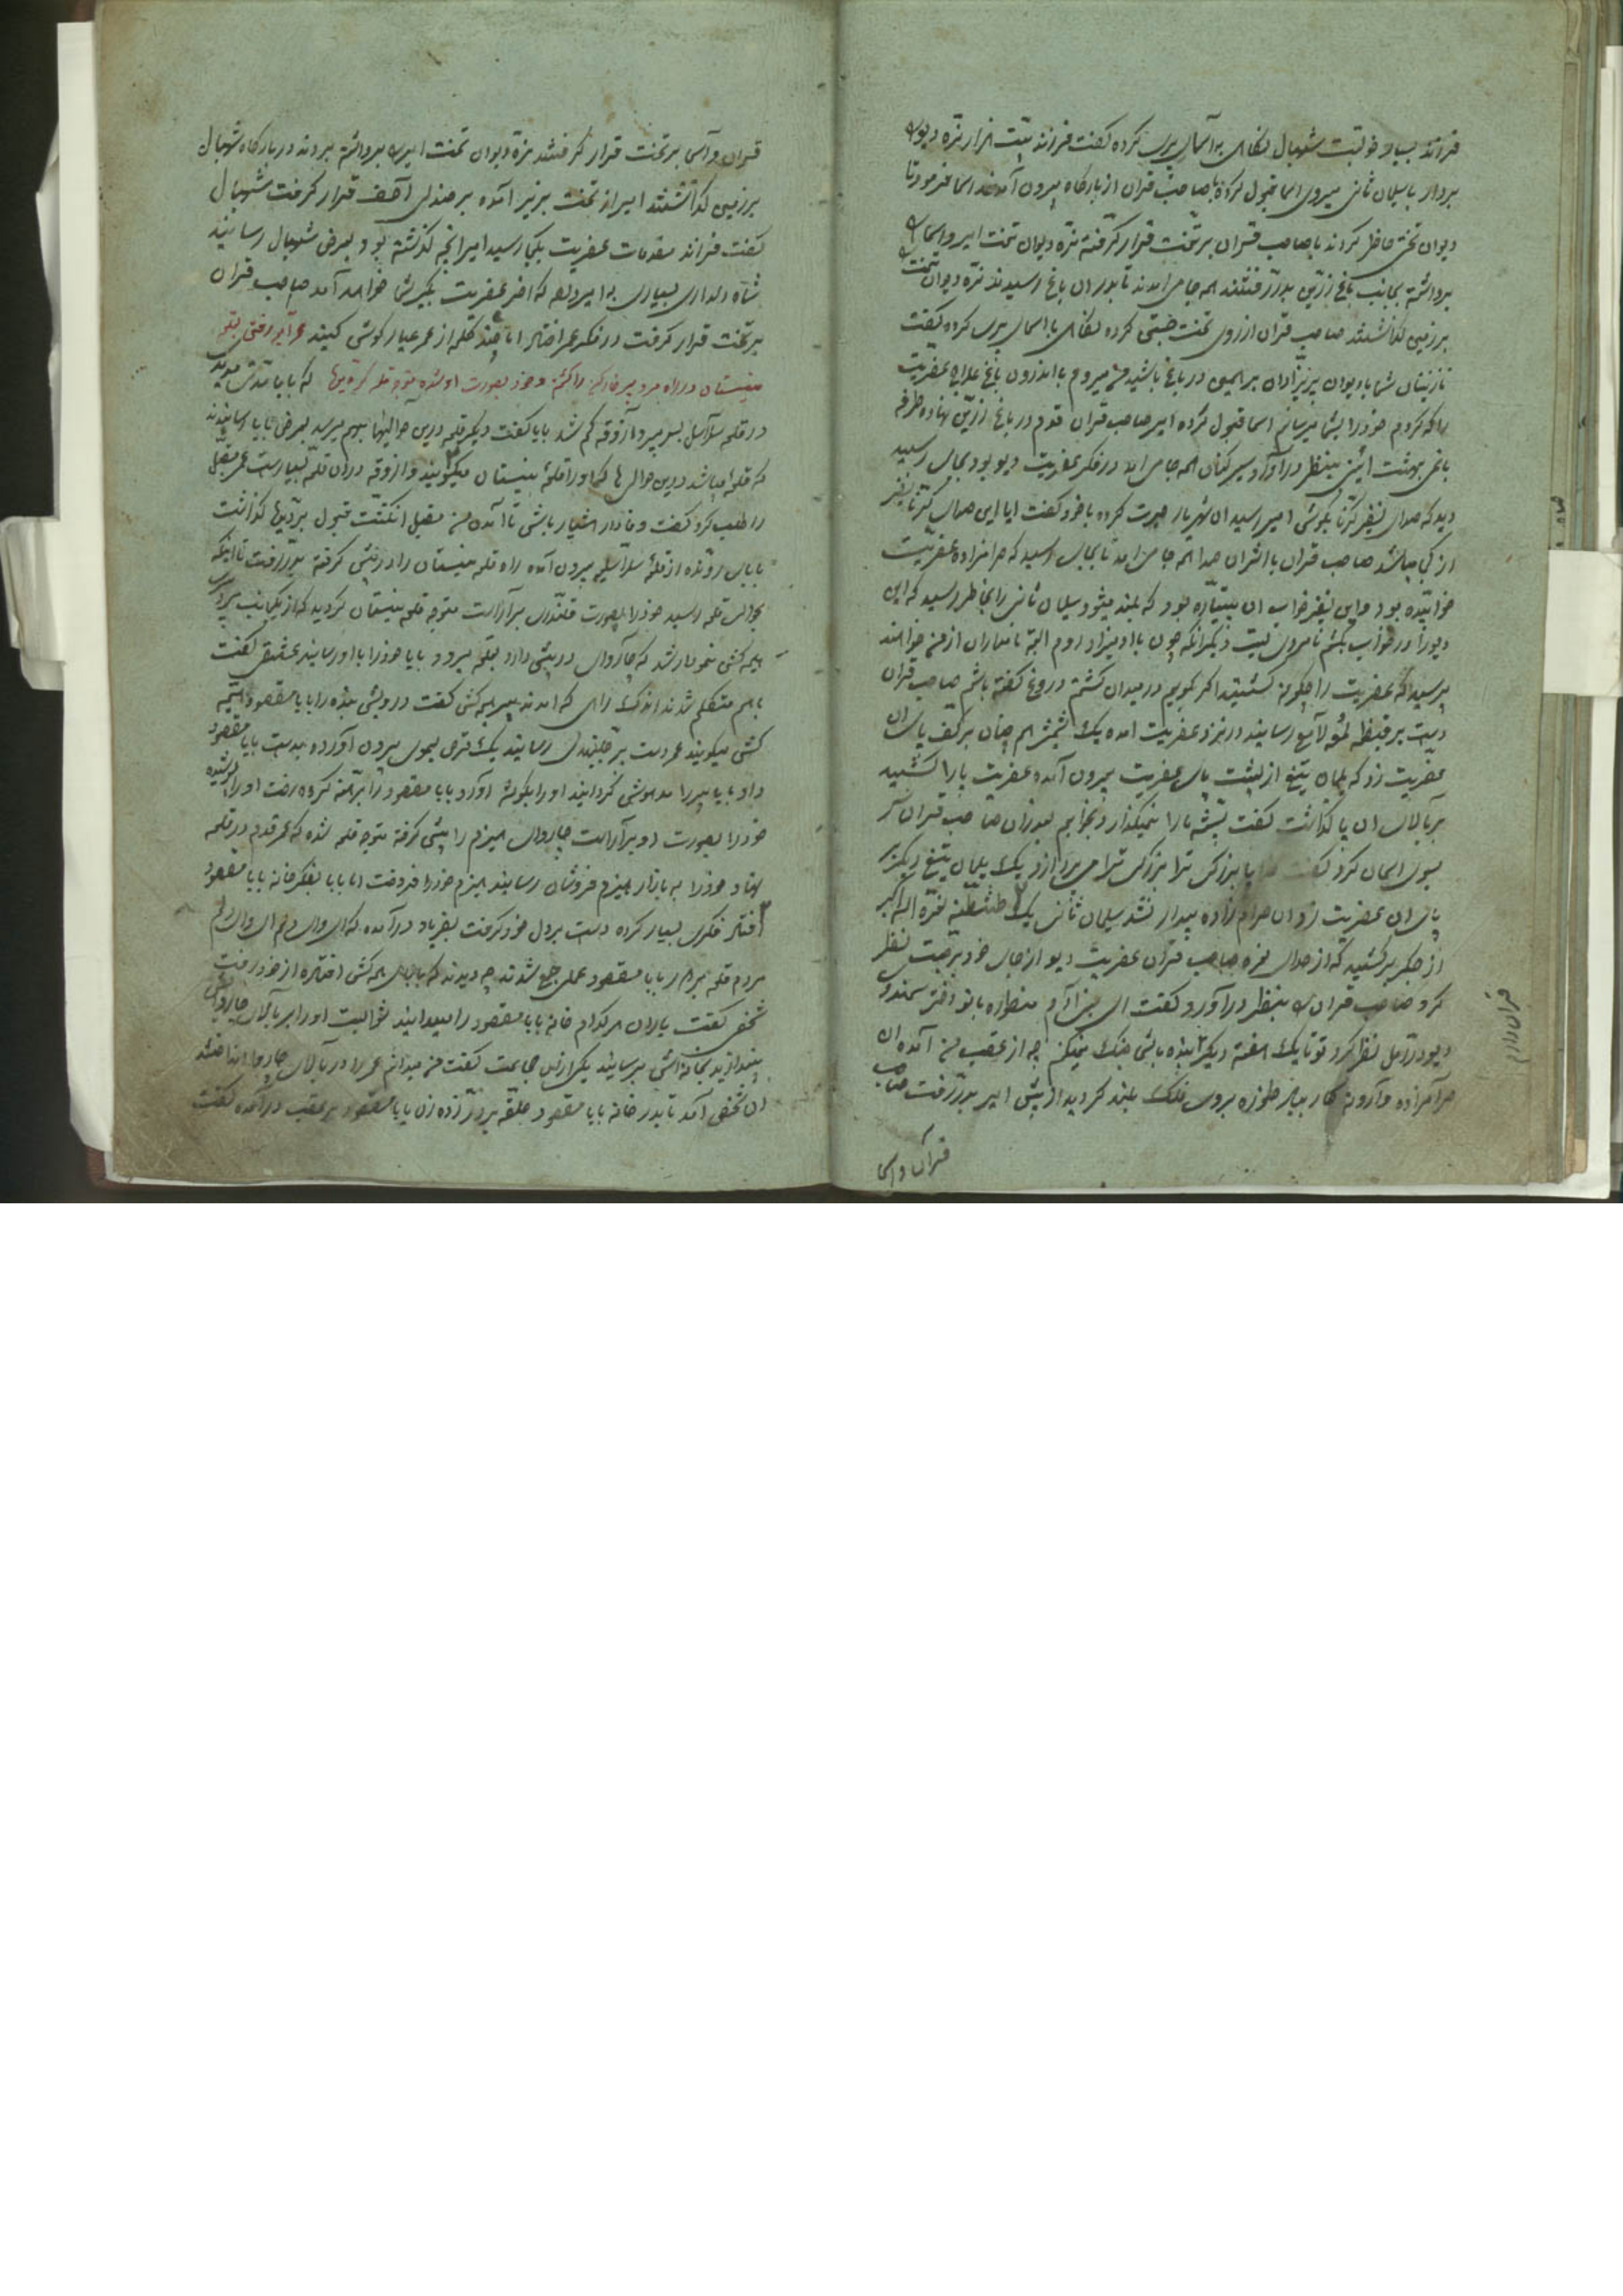 فرزند بسیار خوبست شهپال نگاه به آسمان پری کرده گفت فرزند بیست هزار نره دیو
بردار با سلیمان ثانی میروی اسما قبول کرده با صاحب قران از بارگاه بیرون آمدند اسما فرمود تا
دیوان تخت حاضل کردند با صاحب قران بر تخت قرار گرفته نره دیوان تخت امیر و اسما
برداشته بجانب باغ زرین بدر رفتند همه جا می آمدند تا بدر آن باغ رسیدند نره دیوان تخت
برزمین گذاشتند صاحب قران از روی تخت جستی کرده نگاه با اسمای پری کرده گفت
نازنینان شما با دیوان پریزادان بر همین در باغ باشید من میروم با اندرون باغ علاج عفریت
را که کردم خودرا بشما میرسانم اسما قبول کرده امیر صاحب قران قدم در باغ زرین نهاده طرفه
باغی بهشت آئین بنظر در آورد سیر کنان همه جا می آمد در فکر عفریت دیو بود بجای رسید
دید که صدای نفیر کرنا بگوش امیر رسید آن شهریار حیرت کرده با خود گفت آیا این صدای کرنا نفیر
از کی میباشد صاحب قران با اثر آن صدا همه جا می آمد تا بجای رسید که حرامزاده عفریت
خوابیده بود و این نفیر خواب آن پتیاره بود که بلند میشود سلیمان ثانی را بخاطر رسید که این
دیو را در خواب بکشم نامردی است دیگر آنکه چون با آدمیزاد روم البته نامداران از من خواهند
پرسید که عفریت را چگونه کشتید اگر گویم در میدان کشتم دروغ گفته باشم صاحب قران
دست بر قبضه لمؤلامع رسانید در نزد عفریت آمده یک شمشیر هم چنان بر کف پای آن
عفریت زد که یلمان تیغ از پشت پای عفریت بیرون آمده عفریت پا را کشید
بر بالای آن پا گذاشت گفت پشه ما را نمیگذارد بخوابم بعد از آن صاحب قران سر
بسوی آسمان کرد گفت خدایا بزرگی ترا بزرگی ترا می برازد یک یلمان تیغ دیگر بر
پای آن عفریت زد آن حرام زاده بیدار نشد سلیمان ثانی یک نعره الله اکبر
از جگر برکشید که از صدای نعره صاحب قران عفریت دیو از جای خود برجست نظر
کرد صاحب قران را بنظر در آورد و گفت ای بنی آدم
دیو در رمل نظر کرد تو تا یک هفته دیگر زنده باشی جنگ نمیکنم چه از عقب من آمده آن
حرامزاده وارونه کار بر روی فلک بلند گردید از پیش امیر بدر رفت صاحب
قران و اسما
قران و آسما بر تخت قرار گرفتند نره دیوان تخت امیر برداشته بردند در بارگاه شهپال
برزمین گذاشتند امیر از تخت بزیر آمده بر صندلی آصف قرار گرفت شهپال
گفت فرزند مقدمات عفریت بکجا رسید امیر آنچه گذشته بود بعرض شهپال رسانید
شاه دلداری بسیاری به امیر داد که آخر عفریت بگیر شما خواهد آمد صاحب قران
بر تخت قرار گرفت در فکر عمر افتاد اما چند کلمه از عمر عیار گوش کنید عمر آید رفتن بقلعه
نیستان در راه مرد پیر خارکن را کشته و خود بصورت او شده متوجه قلعه گردیدن که بابا مدتی مدید
در قلعه سلاسل بسر میبرد آزوقه کم شد بابا گفت دیگر قلعه درین حوالیها بهم میرسد بعرض بابا رسانیدند
که قلعه میباشد درین حوالی ها که او را قلعه نیستان میگویند و آزوقه در آن قلعه بسیار است عمر مقبل
را طلب کرد گفت وفادار هشیار باشی تا آمدن من مقبل انگشت قبول بر دیدها گذاشت
بابای رونده از قلعه سلاسل بیرون آمده راه قلعه نیستان را در پیش گرفته بدر رفت تا اینکه
بحوالی قلعه رسید خودرا بصورت قلندری برآراست متوجه قلعه نیستان گردید که از یکجانب پیری
هیمه کشی نمودار شد که چاروای در پیش دارد بقلعه میرود بابا خودرا با او رسانید عشقی گفت
باهم متکلم شدند اندک راهی که آمدند پیر هیمه کش گفت درویش بنده را بابا مقصود هیمه
کش میگویند عمر دست بر جلبندی رسانید یک قرص لیموی بیرون آورده بدست بابا مقصود
داد بابا پیر را مدهوش گردانید او را بگوشه آورد بابا مقصود را برهنه کرده رخت او را پوشیده
خودرا بصورت او برآراست چاروای هیزم را پیش گرفته متوجه قلعه شده که عمر قدم در قلعه
نهاد خودرا به بازار هیزم فروشان رسانید هیزم خودرا فروخت اما بابا بفکر خانه بابا مقصود
افتاد فکری بسیار کرده دست بر دل خود گرفت بفریاد در آمده که ای وای دلم ای وای دلم
مردم قلعه بر سر بابا مقصود عملی جمع شدند چه دیدند که بابای هیمه کش افتاده از خود رفت
شخصی گفت یاران هر کدام خانه بابا مقصود را میدانید ثوابست او را بر بالای چاروای
بیندازید بخانه اش برسانید یکی از آن جماعت گفت من میدانم عمر را در بالای چاروا انداختند
آن شخص آمد تا بدر خانه بابا مقصود حلقه بر در زده زن بابا مقصود بر عقب در آمده گفت